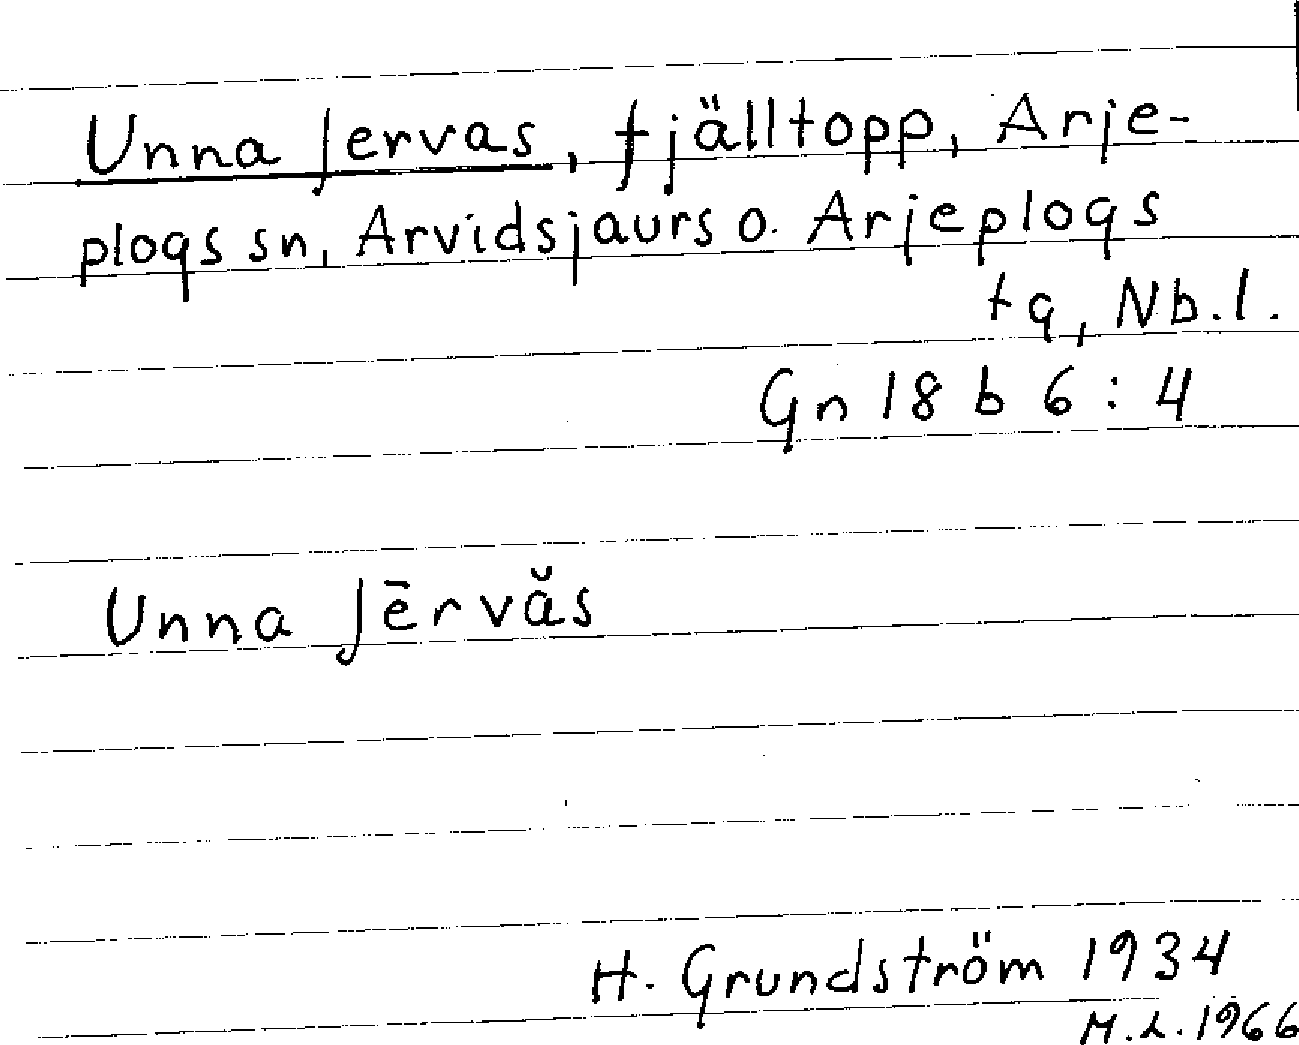 Unna Jervas, fjälltopp, Arje-
plogs sn, Arvidsjaurs o. Arjeplogs
tg, Nb.l.
Gn 18 b 6 : 4
Unna Jērvăs
H. Grundström 1934
M.L. 1966